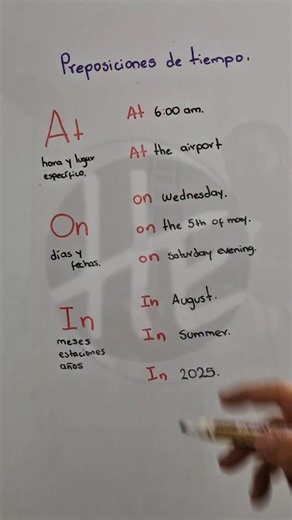 Preposiciones de tiempo.
At
hora y lugar
específico.
At 6:00 am.
At the airport
On
días y
fechas.
on wednesday.
on the 5th of may.
on saturday evening.
In
meses
estaciones
años
In August.
In Summer.
In 2025.